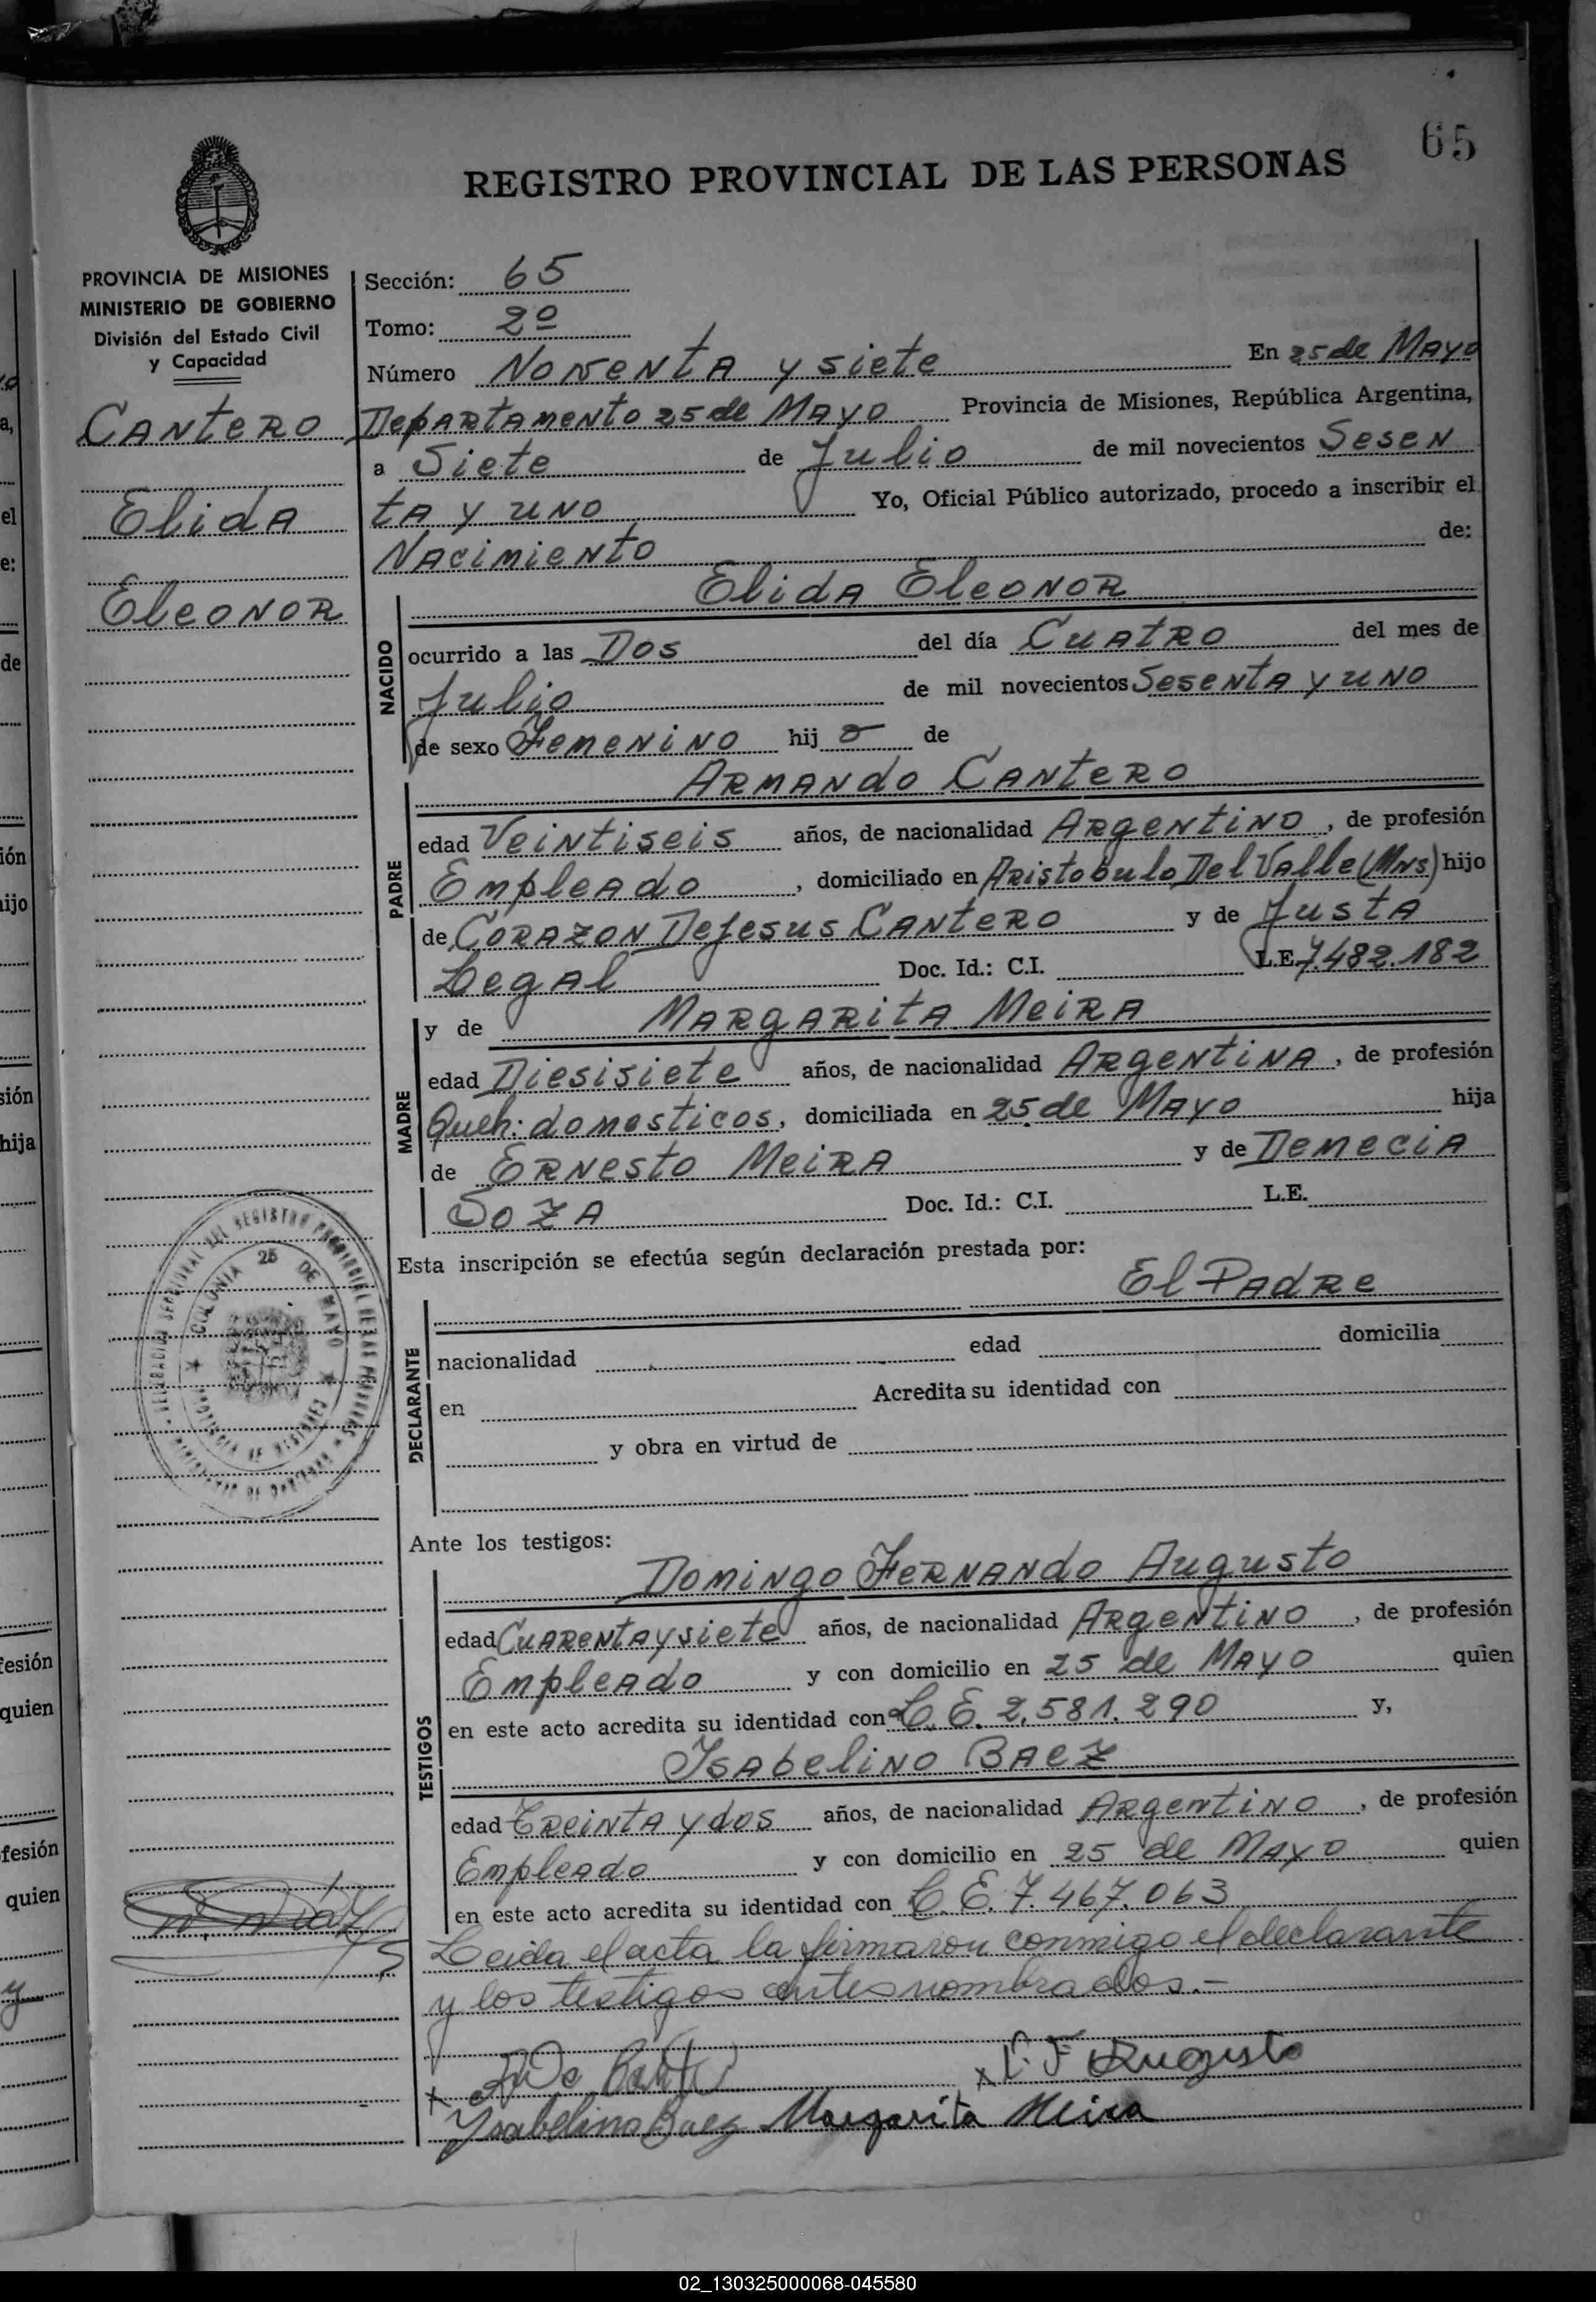 65
REGISTRO PROVINCIAL DE LAS PERSONAS
PROVINCIA DE MISIONES
MINISTERIO DE GOBIERNO
División del Estado Civil
y Capacidad
Cantero
Elida
Eleonor
Sección: 65
Tomo: 2º
Número Noventa y siete En 25 de Mayo
Departamento 25 de Mayo Provincia de Misiones, República Argentina,
a Siete de Julio de mil novecientos Sesen
ta y uno Yo, Oficial Público autorizado, procedo a inscribir el
Nacimiento de:
Elida Eleonor
NACIDO
ocurrido a las Dos del día Cuatro del mes de
Julio de mil novecientos Sesenta y uno
de sexo Femenino hij de
Armando Cantero
PADRE
edad Veintiseis años, de nacionalidad Argentino, de profesión
Empleado, domiciliado en Aristobulo Del Valle (Mns) hijo
de Corazon Dejesus Cantero y de Justa
Legal Doc. Id.: C.I. L.E. 7.482.182
y de Margarita Meira
MADRE
edad Diesisiete años, de nacionalidad Argentina, de profesión
Queh: domesticos, domiciliada en 25 de Mayo hija
de Ernesto Meira y de Demecia
Soza Doc. Id.: C.I. L.E.
Esta inscripción se efectúa según declaración prestada por:
El Padre
DECLARANTE
nacionalidad edad domicilia
en Acredita su identidad con
y obra en virtud de
COLONIA 25 DE MAYO
Ante los testigos:
Domingo Fernando Augusto
TESTIGOS
edad Cuarenta y siete años, de nacionalidad Argentino, de profesión
Empleado y con domicilio en 25 de Mayo quien
en este acto acredita su identidad con L.E. 2.581.290 y,
Isabelino Baez
edad Treinta y dos años, de nacionalidad Argentino, de profesión
Empleado y con domicilio en 25 de Mayo quien
en este acto acredita su identidad con L.E. 7.467.063
Leida el acta la firmaron conmigo el declarante
y los testigos antes nombrados.-
F Augusto
Ysabelino Baez Margarita Meira
02_130325000068-045580